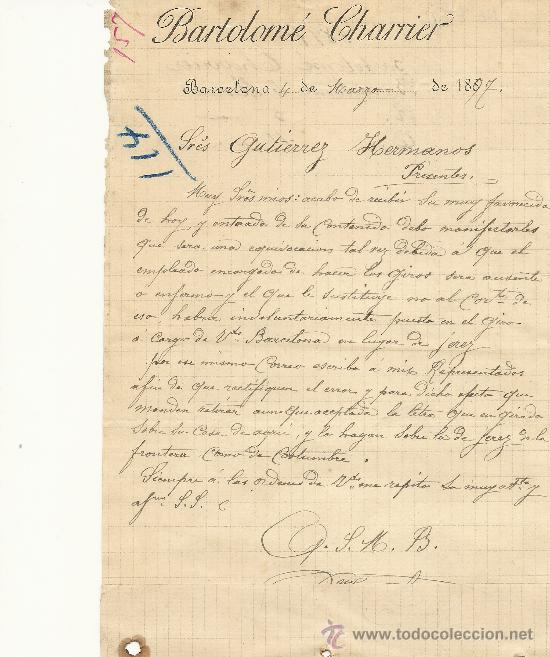 157
Bartolomé Charrier
Barcelona 4 de Marzo de 1897.
114
Srés Gutierrez Hermanos
Presentes.
Muy Srés mios: acabo de recibir su muy favorecida
de hoy y entarado de la contenido debo manifestarles
que sera una equivocacion tal vez debida a que el
empleado encargado de hacer los giros sera ausente
o enfermo y el que le sustituye no al Corrte de
eso habra involuntariamente puesto en el giro
á cargo de Vds Barcelona en lugar de jerez
por ese mismo Correo escribo á mis Representados
afin de que rectifiquen el error y para dicho efecto que
manden retirar aunque aceptada la letra que en girada
sobre su Casa de aqui, y la hagan sobre la de jerez de la
frontera como de Costumbre.
Siempre á las ordenes de Vds me repito su muy atto y
afmo S.S.
Q. S. M. B.
todocoleccion
www.todocoleccion.net